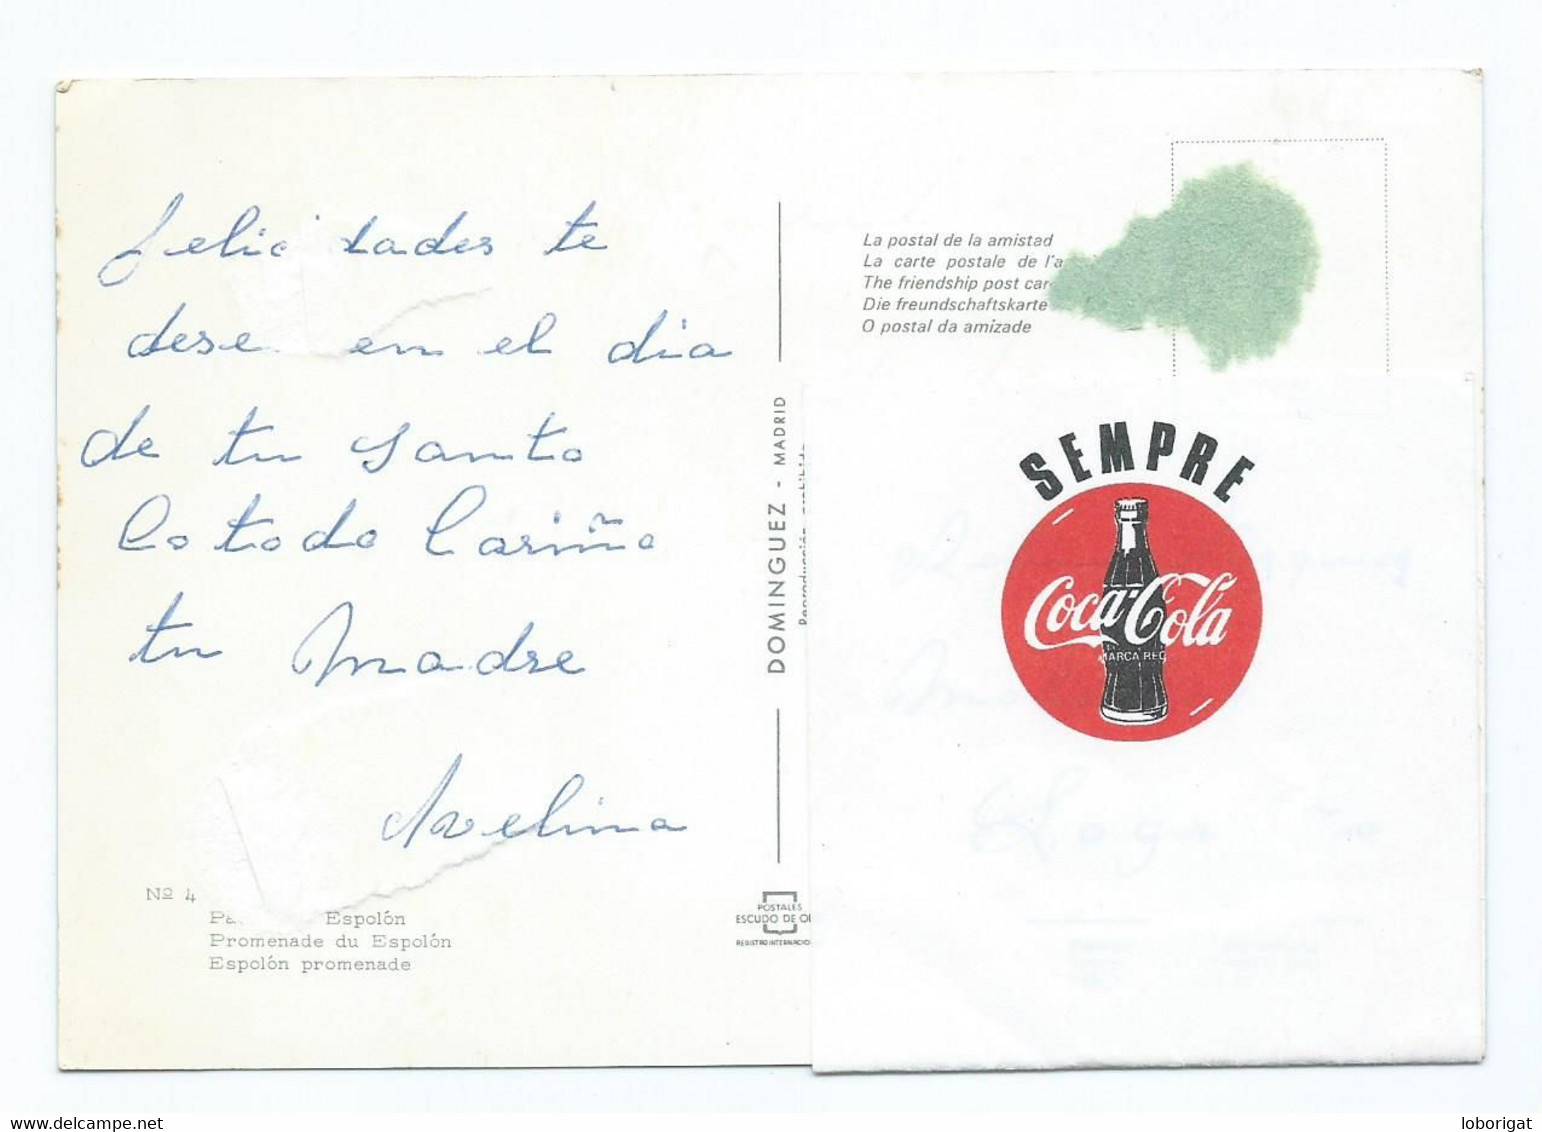 Felicidades te
dese en el dia
de tu santo
Co todo Cariño
tu Madre
Avelina
Nº 4
Espolón
Promenade du Espolón
Espolón promenade
DOMINGUEZ - MADRID
Reproducción prohibida
POSTALES
ESCUDO DE O
REGISTRO INTERNACIO
La postal de la amistad
La carte postale de l'a
The friendship post car
Die freundschaftskarte
O postal da amizade
SEMPRE
Coca-Cola
MARCA REG
www.delcampe.net
loborigat